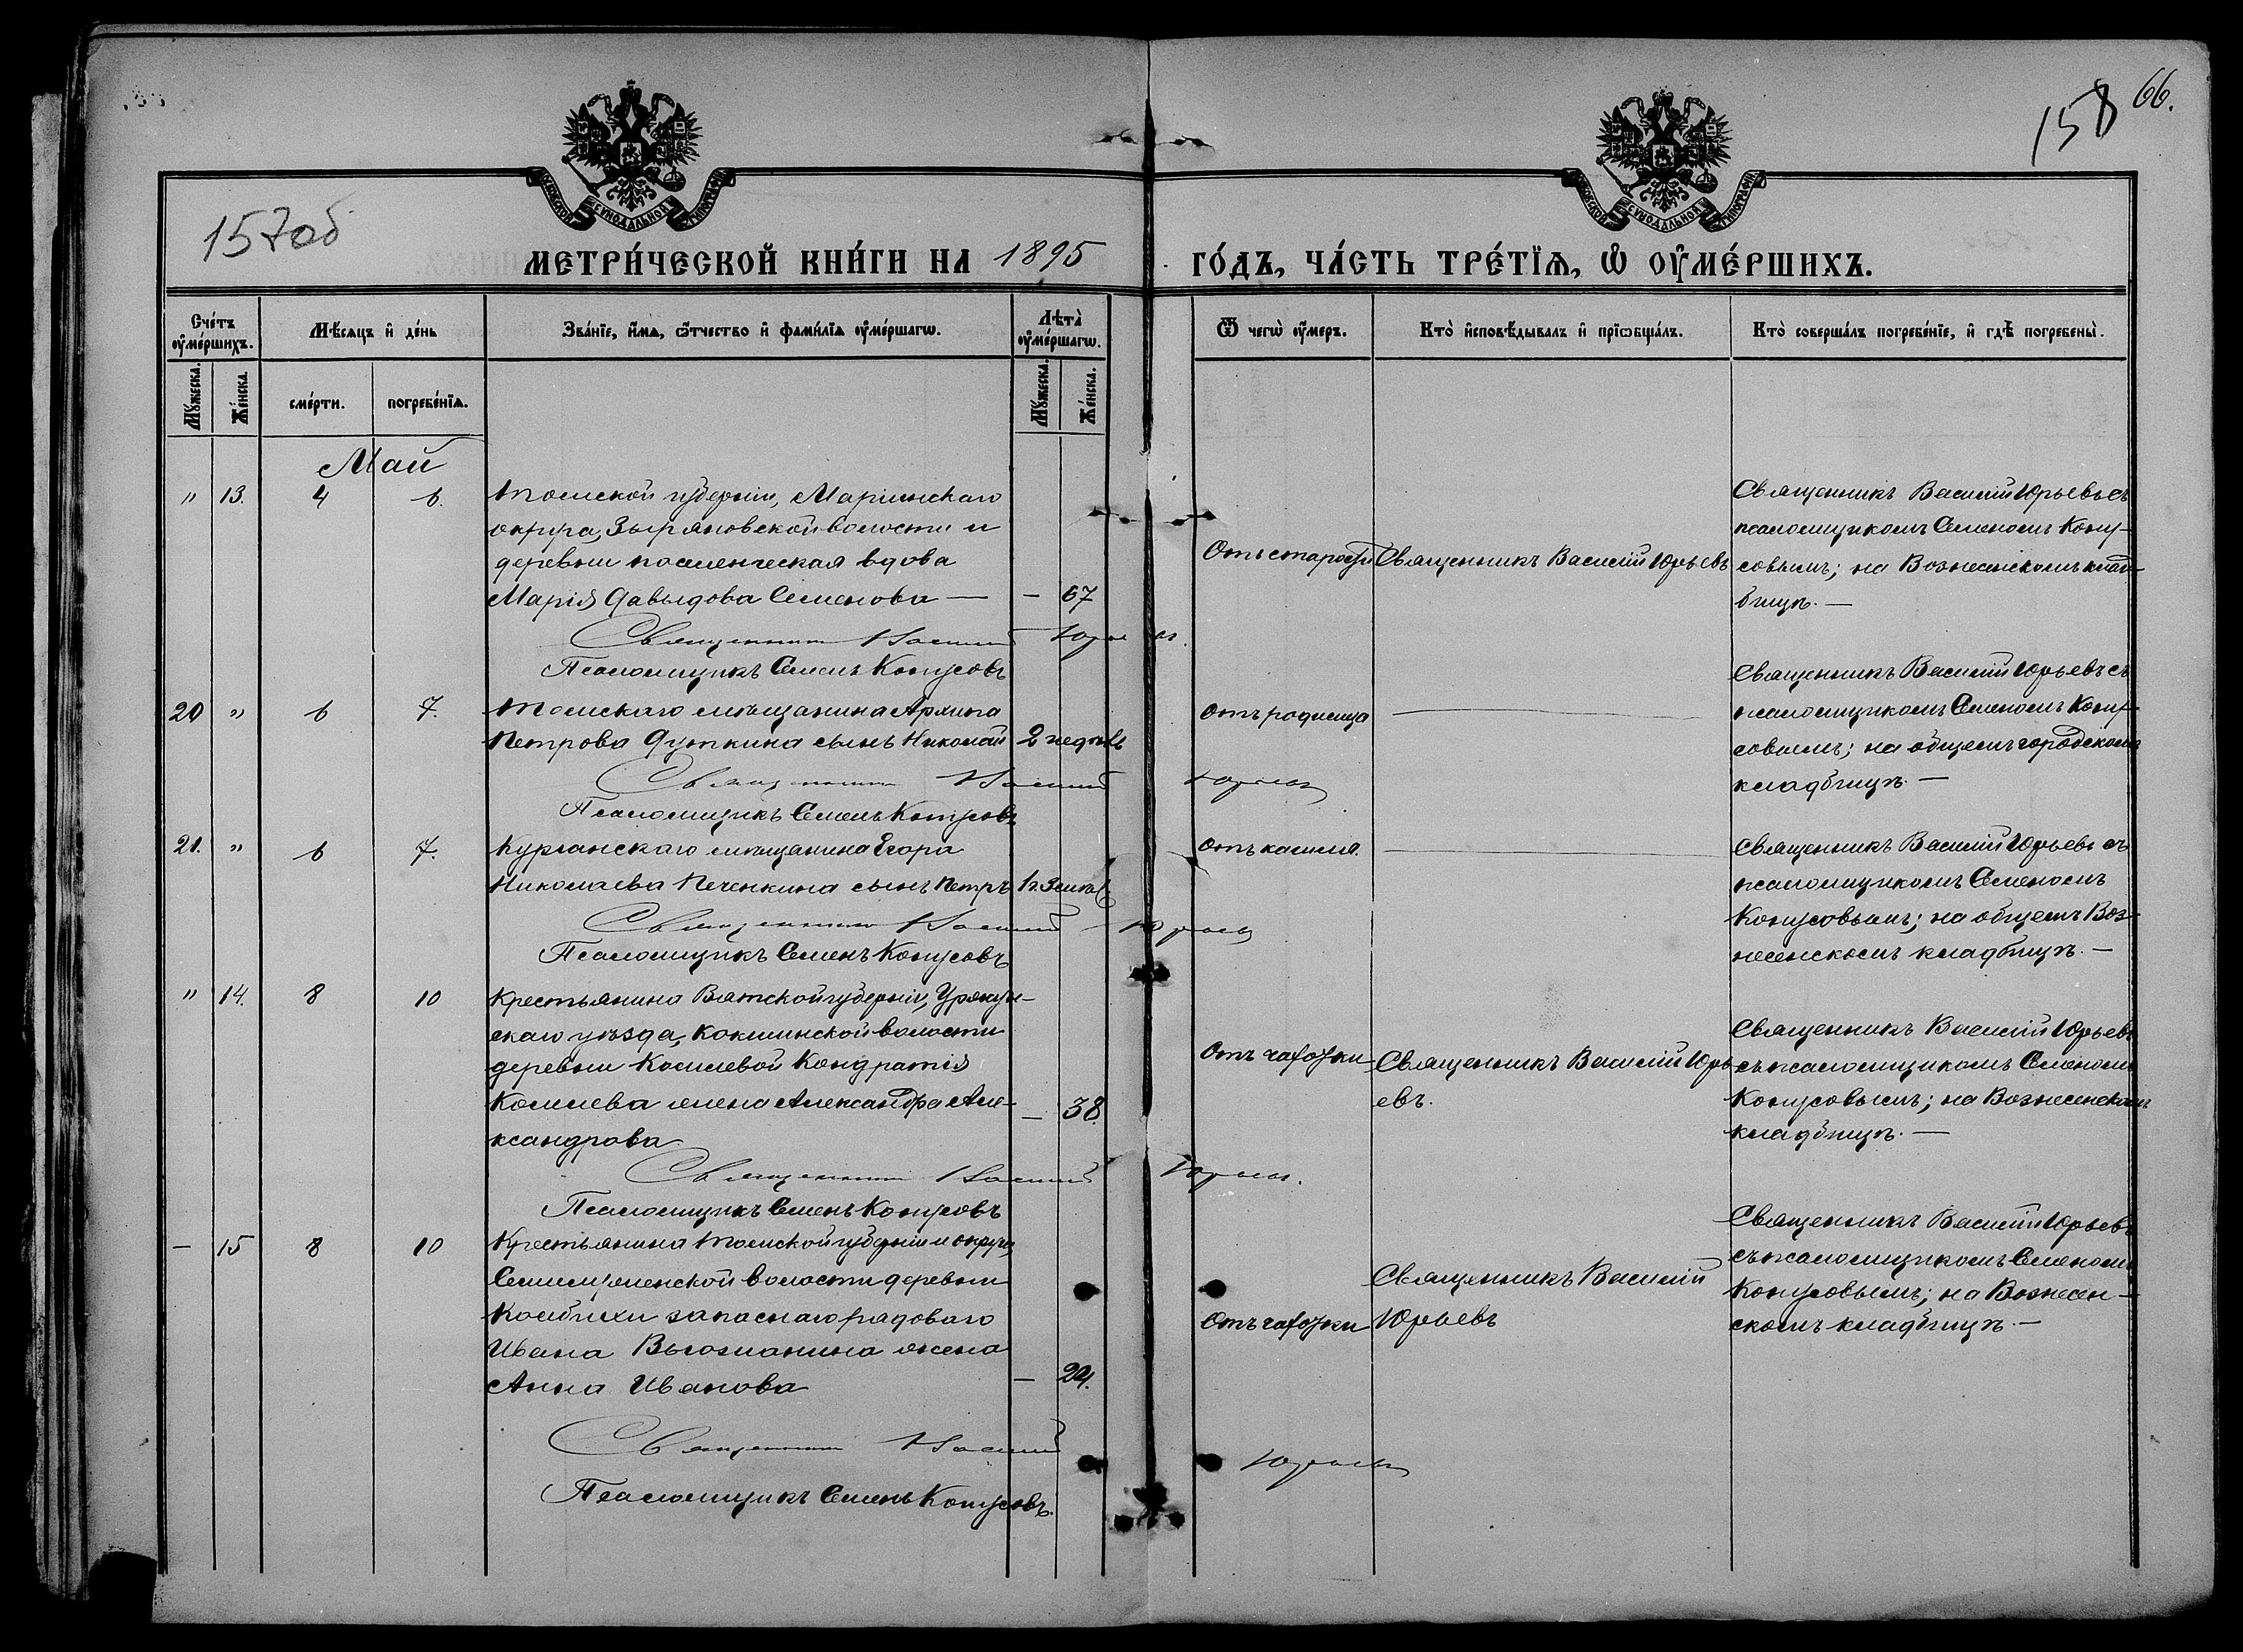 158 66.
157об
МОСКОВСКОЙ СѴНОДАЛЬНОЙ ТИПОГРАФІИ
МОСКОВСКОЙ СѴНОДАЛЬНОЙ ТИПОГРАФІИ
МЕТРИ́ЧЕСКОЙ КНИ́ГИ НА 1895 ГО́ДЪ, ЧА́СТЬ ТРЕ́ТЇѦ, Ѡ҆ ОУ҆МЕ́РШИХЪ.
Сче́тъ оу҆ме́ршихъ.
Мѣ́сѧцъ и҆ де́нь
Зва́нїе, и҆́мѧ, ѻ҆́тчество и҆ фами́лїѧ оу҆ме́ршагѡ.
Лѣта̀ оу҆ме́ршагѡ.
Ѿ чегѡ̀ оу҆́меръ.
Кто̀ и҆сповѣ́дывалъ и҆ прїѡбща́лъ.
Кто̀ соверша́лъ погребе́нїе, и҆ гдѣ̀ погребены̀.
Мꙋ́жеска.
Же́нска.
сме́рти.
погребе́нїѧ.
Мꙋ́жеска.
Же́нска.
Май
" 13. 4 6. Томской губерніи, Маріинскаго
округа, Зыряновской волости и
деревни поселенческая вдова
Марія Давыдова Семенова — — 67
Отъ старости
Священникъ Василій Юрьевъ
Священникъ Василій Юрьевъ съ
псаломщикомъ Семеномъ Кону-
совымъ; на Вознесенскомъ клад-
бищѣ. —
Священникъ Василій Юрьевъ.
Псаломщикъ Семенъ Конусовъ
20 " 6 7. Томскаго мѣщанина Архипа
Петрова Дуткина сынъ Николай 2 недѣль
отъ родимца —
Священникъ Василій Юрьевъ съ
псаломщикомъ Семеномъ Кону-
совымъ; на общемъ городскомъ
кладбищѣ. —
Священникъ Василій Юрьевъ
Псаломщикъ Семенъ Конусовъ
21. " 6 7. Курганскаго мѣщанина Егора
Николаева Печенкина сынъ Петръ
отъ кашля. —
Священникъ Василій Юрьевъ съ
псаломщикомъ Семеномъ
Конусовымъ; на общемъ Воз-
несенскомъ кладбищѣ. —
Священникъ Василій Юрьевъ
Псаломщикъ Семенъ Конусовъ
" 14. 8 10 Крестьянина Вятской губерніи,
скаго уѣзда, Кокшинской волости
деревни Кошлевой Кондратія
Кошлева жена Александра Але-
ксандрова — 38.
Отъ чахотки
Священникъ Василій Юрь-
евъ.
Священникъ Василій Юрьевъ
съ псаломщикомъ Семеномъ
Конусовымъ; на Вознесенскомъ
кладбищѣ. —
Священникъ Василій Юрьевъ.
Псаломщикъ Семенъ Конусовъ
— 15 8 10 Крестьянина Томской губерніи и округа,
Семилуженской волости деревни
запаснаго рядоваго
Ивана жена
Анна Иванова — 24.
Отъ чахотки
Священникъ Василій
Юрьевъ
Священникъ Василій Юрьевъ
съ псаломщикомъ Семеномъ
Конусовымъ; на Вознесен-
скомъ кладбищѣ. —
Священникъ Василій Юрьевъ
Псаломщикъ Семенъ Конусовъ.